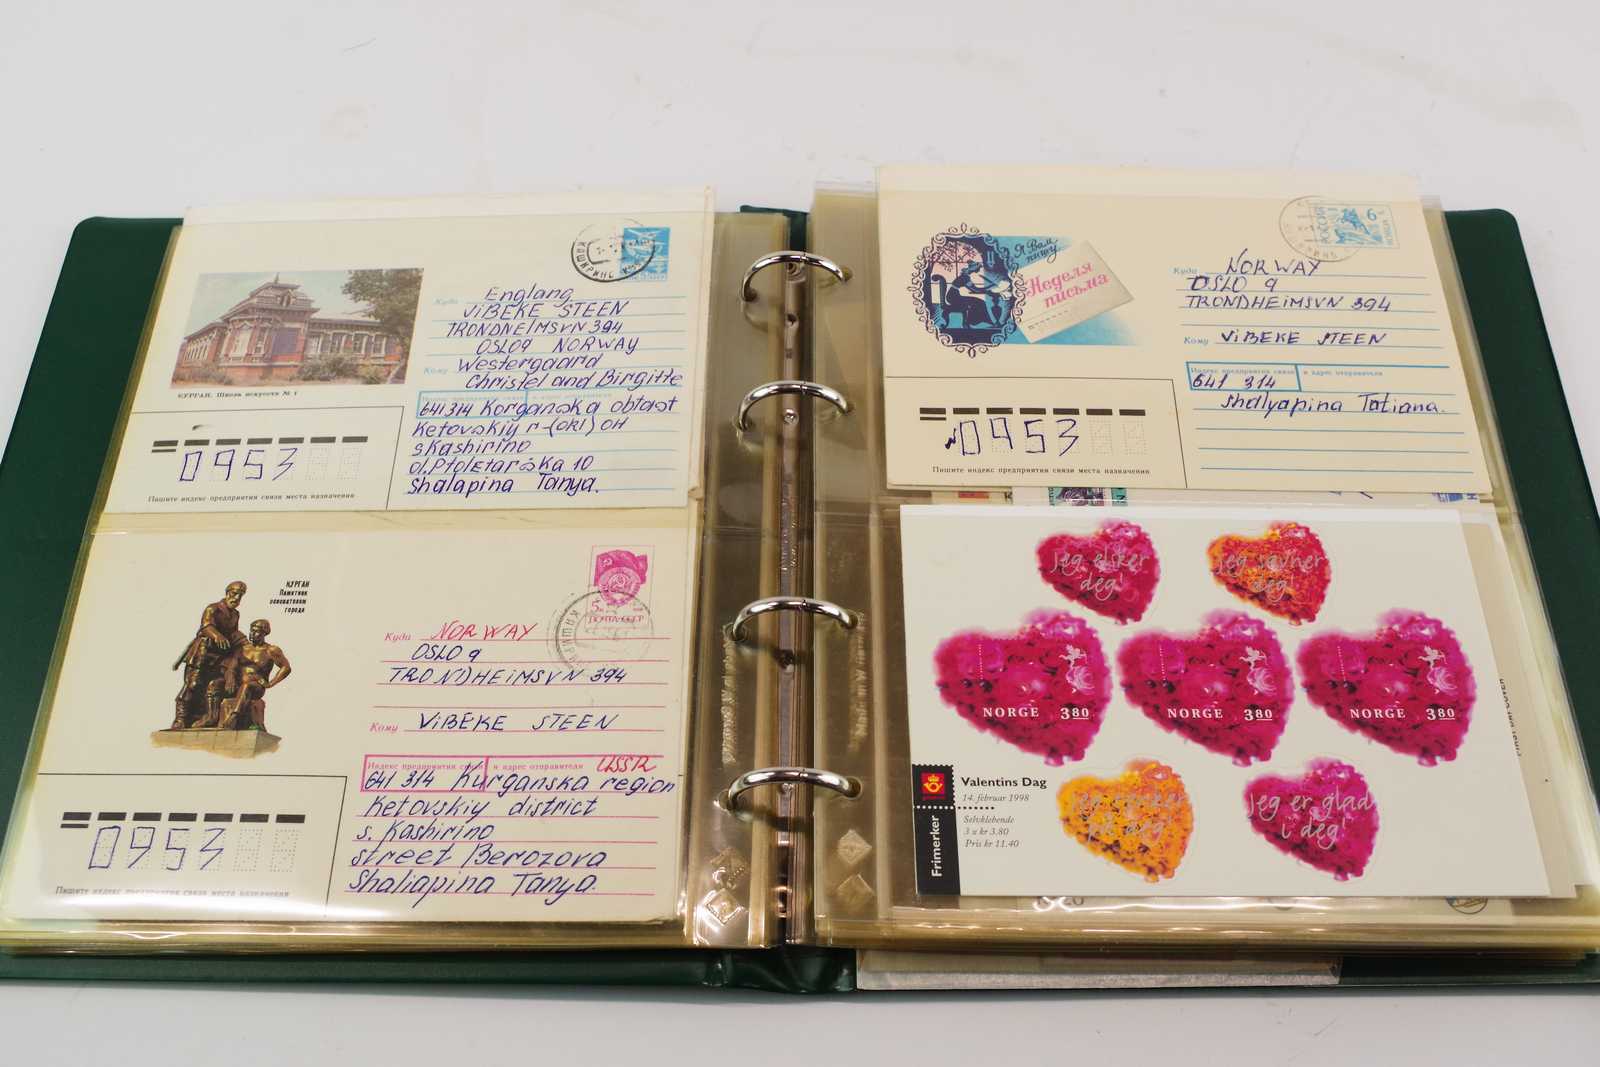 КАШИРИНО
Куда
Englang
ViBEKE STEEN
TRONDNEiMSVN 394
OSLO9 NORWAY
Кому
Westergaard
Christel and Birgitte
Индекс предприятия связи и адрес отправителя
641314 Korganska obtast
Ketovskiy r-(OKI)OH
s Kashirino
ol. Ptoletarska 10
Shalapina Tanya.
КУРГАН. Школа искусств № 1
0953
Пишите индекс предприятия связи места назначения
КУРГАН
Памятник
основателям
города
5к
ПОЧТА СССР
Куда
NORWAY
OSLO 9
TRONDHEiMSVN 394
Кому
ViBEKE STEEN
Индекс предприятия связи и адрес отправителя
USSR
641 314 Kurganska region
Ketovskiy district
s. Kashirino
street Berozova
Shaliapina Tanya.
0953
Пишите индекс предприятия связи места назначения
Я Вам
пишу
Неделя
письма
РОССИЯ
6
Куда
NORWAY
OSLO 9
TRONDHEiMSVN 394
Кому
ViBEKE STEEN
Индекс предприятия связи и адрес отправителя
641 314
Shalyapina Tatiana.
0953
Пишите индекс предприятия связи места назначения
Jeg elsker
deg!
Jeg savner
deg!
NORGE 380
NORGE 380
NORGE 380
Valentins Dag
14. februar 1998
Selvklebende
3 x kr 3.80
Pris kr 11.40
Frimerker
Jeg tenker
på deg!
Jeg er glad
i deg!
FIRST DAY COVER